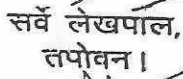 सर्वे लेखपाल,
तपोवन।